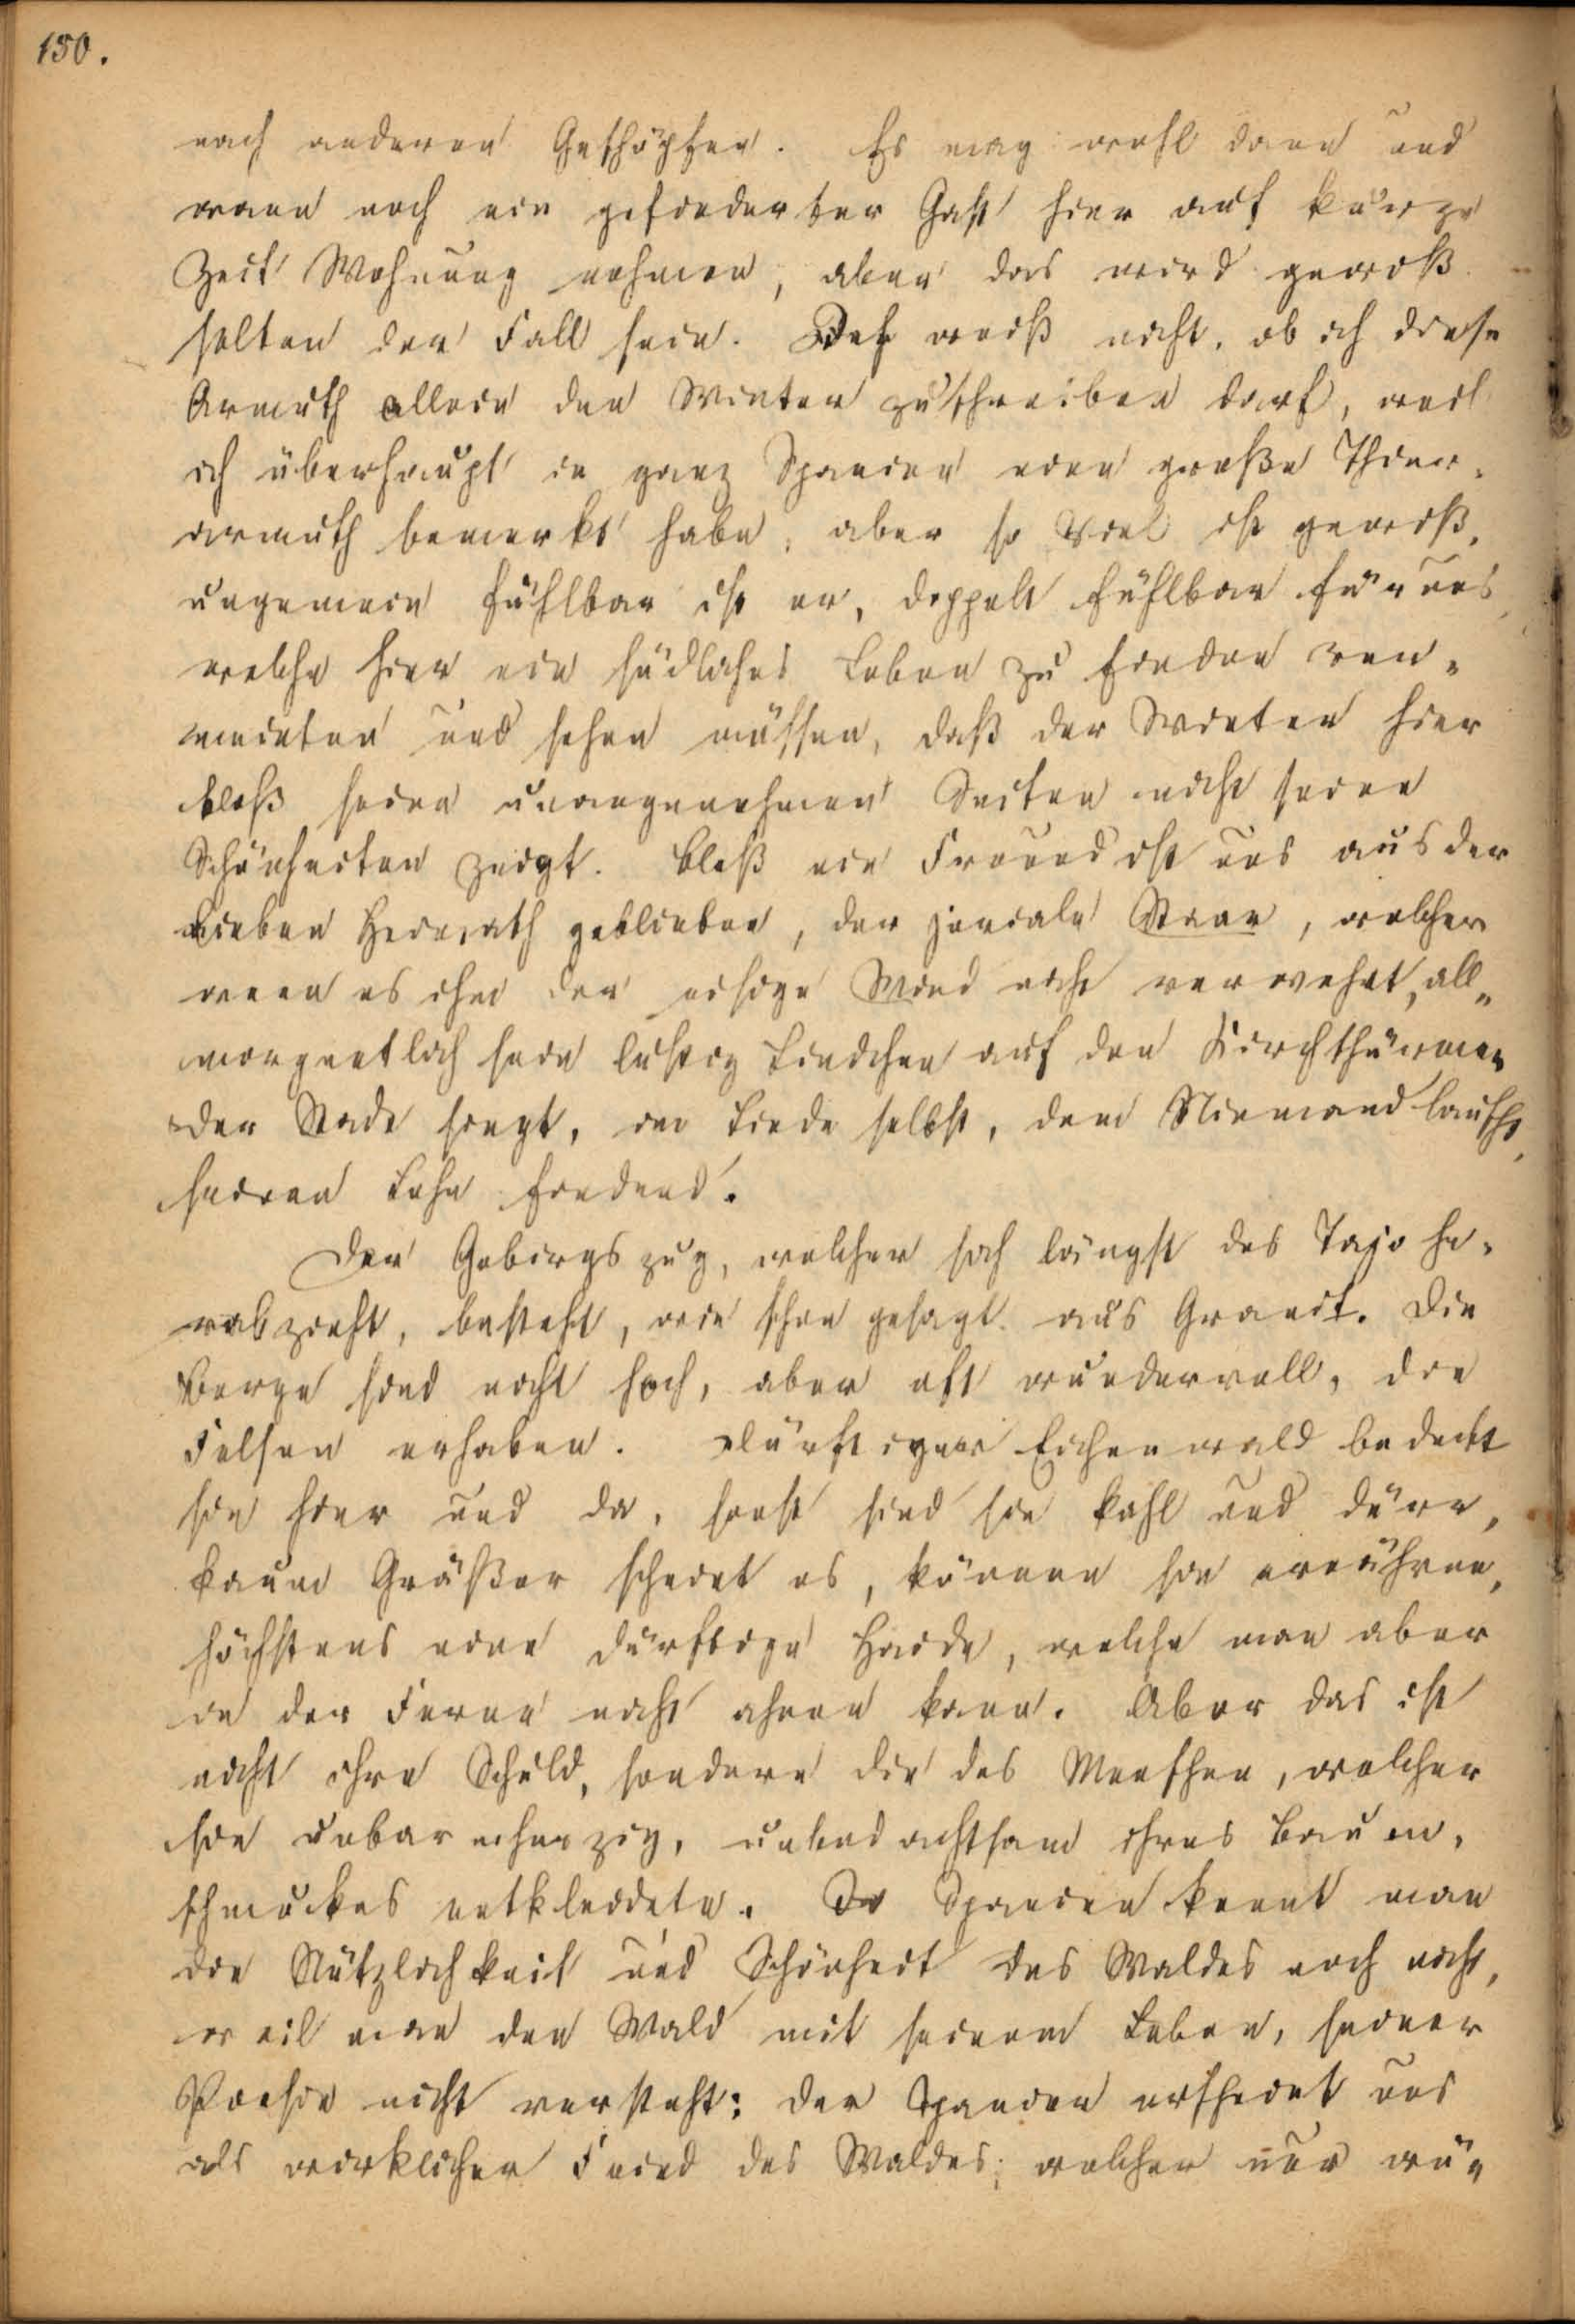 150.
nach anderen Geschöpfen. Es mag wohl dann und
wann noch ein gefiederter Gast hier auf kurze
Zeit Wohnung nehmen, aber das wird gewiß
selten der Fall sein. Ich weiß nicht, ob ich diese
Armuth allein den Winter zuschreiben darf, weil
ich überhaupt in ganz Spanien eine große Thier-
armuth bemerkt habe, aber so viel ist gewiß,
ungemein fühlbar ist er, doppelt fühlbar für uns,
welche hier ein südliches Leben zu finden ver-
meinten und sehen müssen, daß der Winter hier
bloß seine unangenehmen Seiten nicht seine
Schönheiten zeigt. Bloß ein Freund ist uns aus der
lieben Heimath geblieben, der joviale Staar, welcher
wenn es ihm der eisige Wind nicht verwehrt, all-
morgentlich sein lustig Liedchen auf den Kirchthürmen
der Stadt singt, im Liede selbst, dem Niemand lauscht,
seinen Lohn findend.
Der Gebirgszug, welcher sich längst des Tajo he-
rabzieht, besteht, wie schon gesagt aus Granit. Die
Berge sind nicht hoch, aber oft wundervoll, die
Felsen erhaben. Dürftiger Eichenwald bedeckt
sie hier und da, sonst sind sie kahl und dürr,
kaum Gräßer scheint es, können sie ernähren,
höchstens eine dürftige Haide, welche man aber
in der Ferne nicht ahnen kann. Aber das ist
nicht ihre Schuld, sondern die des Menschen, welcher
sie unbarmherzig, unbedachtsam ihres Baum-
schmuckes entkleidete. In Spanien kennt man
die Nützlichkeit und Schönheit des Waldes noch nicht,
weil man den Wald mit seinem Leben, seiner
Poesie nicht versteht: der Spanier erscheint uns
als wirklicher Feind des Waldes, welcher nur wü-